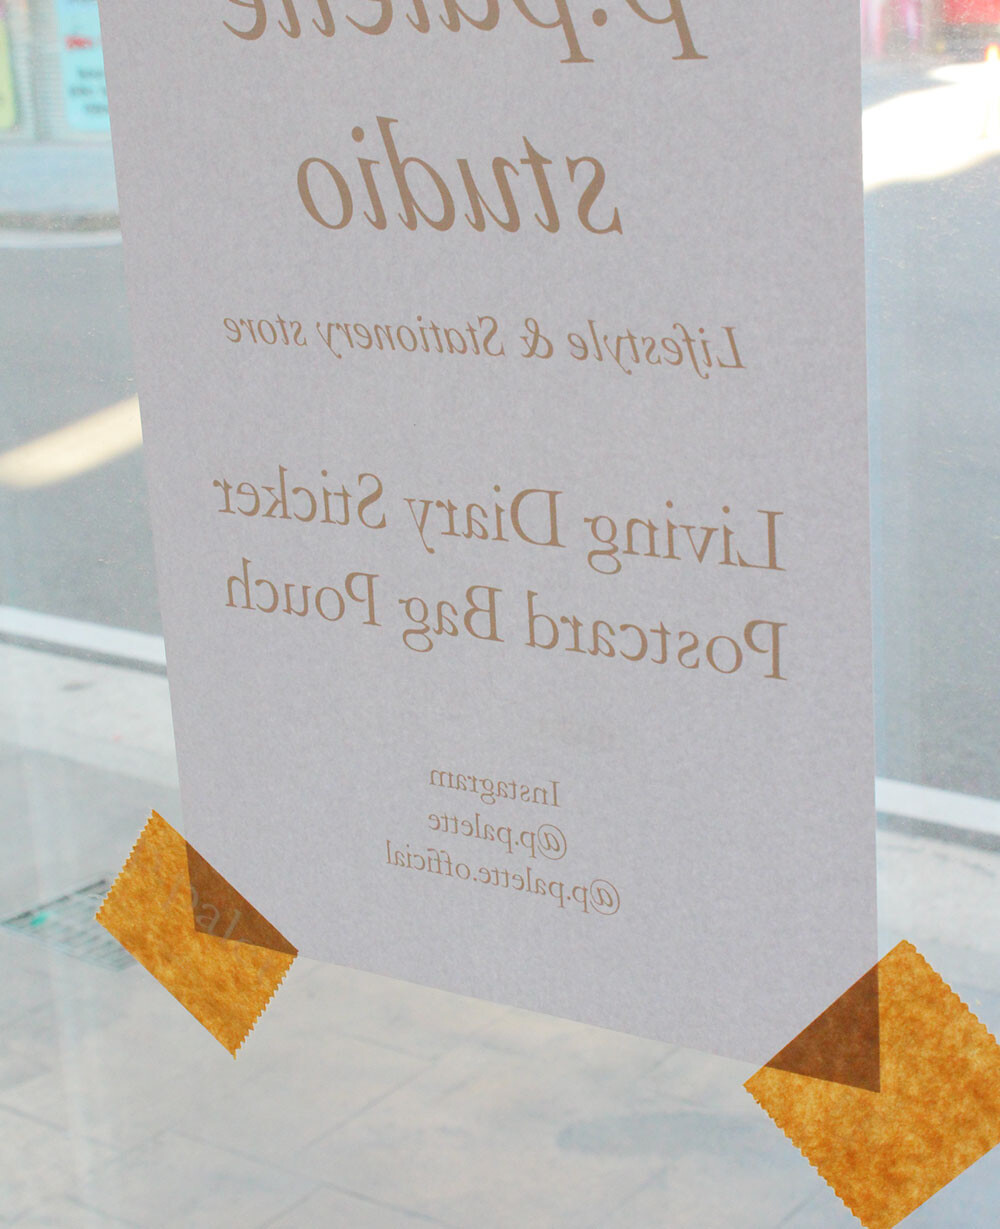 p.palette
studio
Lifestyle & Stationery store
Living Diary Sticker
Postcard Bag Pouch
Instagram
@p.palette
@p.palette.official